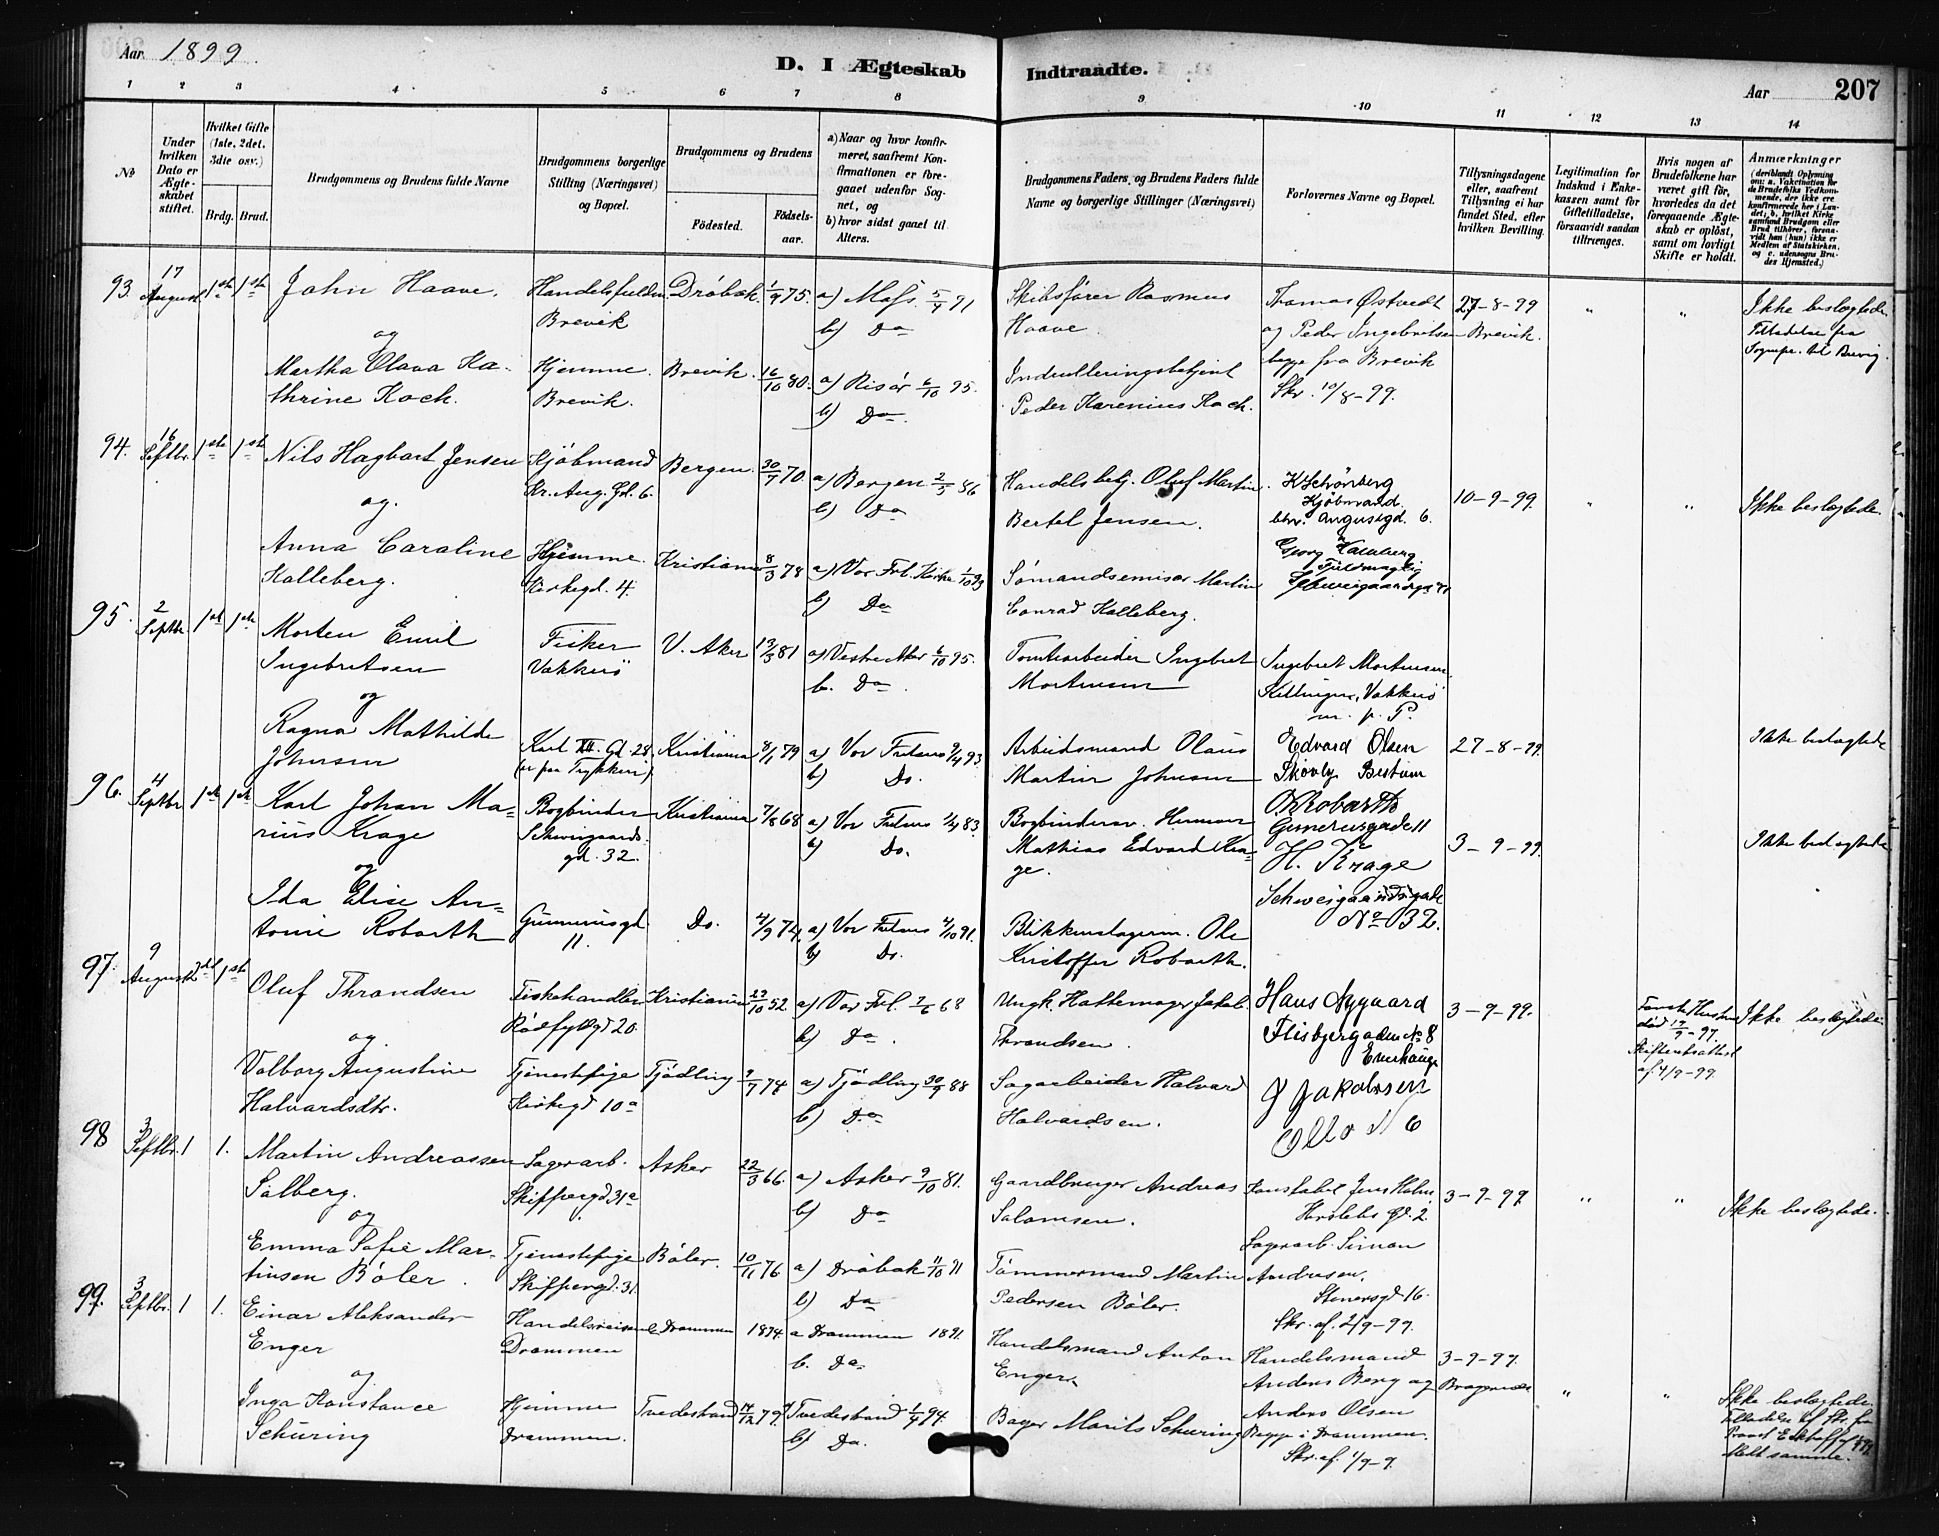 Aar 1899.
D. I Ægteskab Indtraadte.
Aar 207
1 2 3 4 5 6 7 8 9 10 11 12 13 14
№
Under hvilken Dato er Ægteskabet stiftet.
Hvilket Gifte (1ste, 2det, 3die osv.)
Brdg. Brud.
Brudgommens og Brudens fulde Navne
Brudgommens borgerlige Stilling (Næringsvei) og Bopæl.
Brudgommens og Brudens
Födested.
Födselsaar.
a) Naar og hvor konfirmeret, saafremt Konfirmationen er foregaaet udenfor Sognet, og
b) hvor sidst gaaet til Alters.
Brudgommens Faders og Brudens Faders fulde Navne og borgerlige Stillinger (Næringsvei)
Forlovernes Navne og Bopæl.
Tillysningsdagene eller, saafremt Tillysning ei har fundet Sted, efter hvilken Bevilling.
Legitimation for Indskud i Enkekassen samt for Giftetilladelse, forsaavidt saadan tiltrænges.
Hvis nogen af Brudefolkene har været gift för, hvorledes da det foregaaende Ægteskab er oplöst, samt om lovligt Skifte er holdt.
Anmærkninger
93. 17 August 1ste 1ste John Haave. Brevik Dröbak. 1/9 75. a) Moss. 5/4 91 b) Do
Skibsförer Rasmus Haave. Thomas Östvedt og Peder Ingebretsen begge fra Brevik Skr. 10/8-99. 27-8-99 Brevik. " " Ikke beslægtede
og
Martha Olava Kathrine Koch. Hjemme. Brevik. Brevik. 16/10 80. a) Risör 6/10 95. b) Do.
Peder Karenius Koch.
94. 16 Septbr. 1ste 1ste Nils Hagbart Jensen Kjöbmand Kr. Aug. Gd. 6. Bergen. 30/7 70. a) Bergen 2/5 86 b) Do
Handelsbetj. Oluf Martin Bertel Jensen. K Schönberg Kjöbmand. Augustgd. 6. 10-9-99. " " Ikke beslægtede.
og.
Anna Caroline Kalleberg. Hjemme. Kirkegd. 4. Kristiania 8/3 78 a) Vor Frl. Kirke b) Do
Martin Conrad Kalleberg. Georg
95. 2 Septbr. 1ste 1ste Morten Emil Ingebretsen Fisker Vækkerö V. Aker 13/3 81 a) Vestre Aker 6/10 95. b. Do.
Tomtearbeider Ingebret Mortensen Ingebret Mortensen Killingen, Vækkerö m. p. P.
og
Ragna Mathilde Johnsen Karl XII. Gd. 28. Kristiania 8/1 79 a) Vor Frelsers 9/4 93. b) Do.
Arbeidsmand Olaus Martin Johnsen Edvard Olsen Skovly Bestum 27-8-99. Ikke beslægtede
96. 4 Septbr. 1ste 1ste Karl Johan Marius Krage Bogbinder Schweigaardsgd. 32. Kristiania 7/8 68 a) Vor Frelsers 83. b) Do.
Bogbindersv. Herman Mathias Edvard Krage. O Robarth Gunerusgade 11 H. Krage Schweigaardsgade № 32. 3-9-99. Ikke beslægtede
og
Ida Elise Antonie Robarth Gunnerusgd. 11. Do. 4/9 74. a) Vor Frelsers 4/10 91. b) Do.
Blikkenslagerm. Ole Kristoffer Robarth.
97. 9 August 2det 1ste Oluf Thrandsen Fiskehandler Rödfyldgd 20. Kristiania 22/10 52. a) Vor Frl. 7/6 68 b) Do.
Ungk. Hattemager Jakob Thrandsen. Hans Nygaard Flisbjergaden № 8 Enerhaugn 3-9-99. Første Hustru död 17/9-97. Skifteretsattest af 4/9-99. Ikke beslægtede.
og
Valborg Augustine Halvardsdtr. Tjenestepige Kirkegd 10a Tjödling 9/7 74 a) Tjödling 30/9 88 b) Do
Sagarbeider Halvard Halvardsen. J Jakobsen
98 3 Septbr. 1 1. Martin Andreassen Solberg. Lagerarb. Skippergd 31a Asker 22/3 66. a) Asker 9/10 81. b) Do
Gaardbruger Andreas Salomsen. Konstabel Jens Holm Herslebs Gd. 2. 3-9-99. " " Ikke beslægtede.
og
Emma Sofie Martinsen Böler. Tjenestepige Skippergd. 31. Böler. 10/11 76 a) Dröbak 11/10 91 b) Do
Tömmermand Martin Pedersen Böler. Lagerarb. Simon Andresen. Stenersgd 16. Skr. af. 2/9-99.
99. 3 Septbr. 1 1. Einar Aleksander Enger Handelsreisende Drammen Drammen 1874. a Drammen 1891. b. Do
Handelsmand Anton Enger. Handelsmand Anders Berg og Anders Olsen Begge i Drammen. Skr. af. 1/9-9. 3-9-99. Bragernæs " " Ikke beslægtede.
og
Inga Konstance Schüring Hjemme Drammen. Tvedestrand 14/12 79. Tvedestrand 1/4 94. b) Do.
Bager Marits Schüring